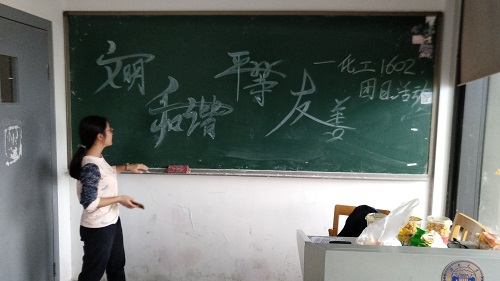 文明
和谐
平等
友善
—化工1602
团日活动